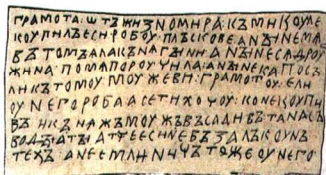 ГРАМОТА : ѠТЪ ЖИЗНОМИРА : КЪ МИКОУЛЕ :
КОУПИЛЪ ЕСИ : РОБОУ : ПЛЪСКОВЕ : А НЫНЕ МѦ
ВЪ ТОМЪ : ѦЛА КЪНѦГЫНИ : А НЫНЕ СѦ ДРОУ
ЖИНА : ПО МѦ ПОРОУЧИЛА : А НЫНЕ КА : ПОСЪ
ЛИ КЪ ТОМОУ : МОУЖЕВИ : ГРАМОТОУ : ЕЛИ
ОУ НЕГО РОБА : А СЕ ТИ ХОЧОУ : КОНЕ КОУПИ
ВЪ : И КЪНѦЖЪ МОУЖЪ ВЪСАДИВЪ ТА НА СЪ
ВОДЫ : А ТЫ АТЧЕ ЕСИ НЕ ВЪЗАЛЪ КОУНЪ
ТЕХЪ : А НЕ ЕМЛИ НИЧЪТО ЖЕ ОУ НЕГО